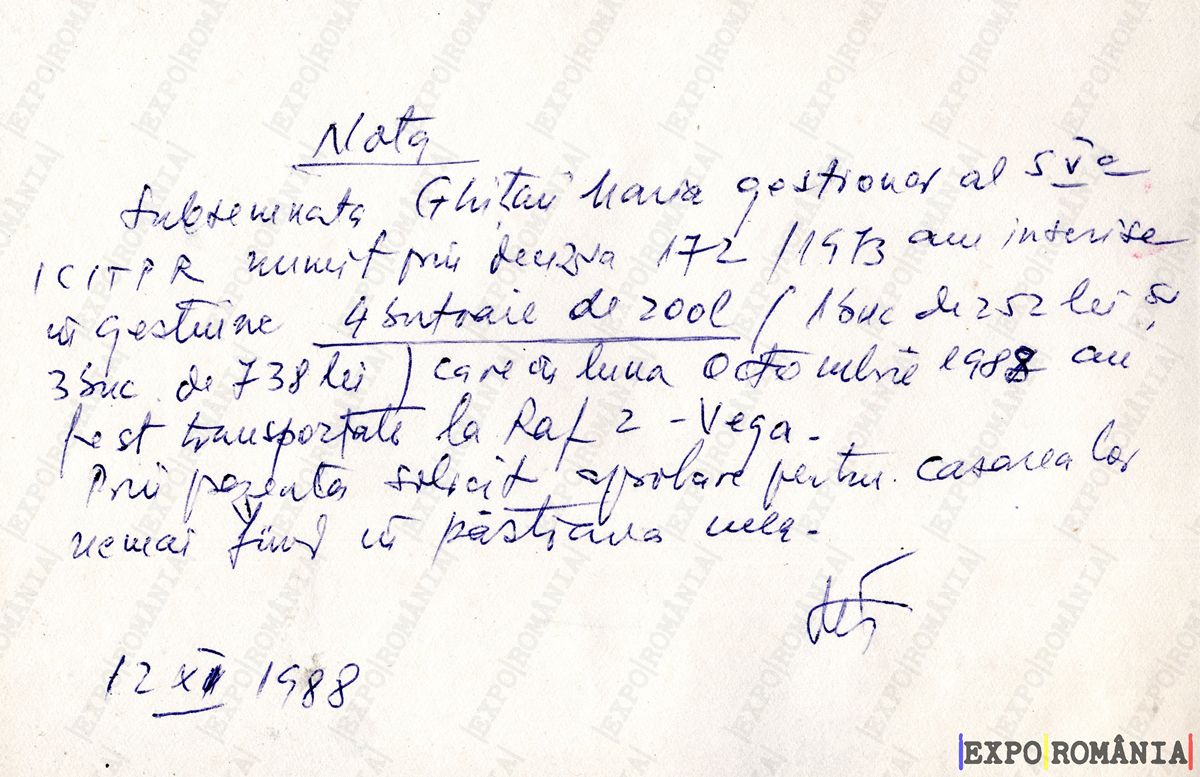 Nota
Subsemnata Ghițău Maria gestionar al S V a
ICITPR numit prin decizia 172 / 1973 am inscrise
în gestiune 4 butoaie de 200l ( 1 buc de 252 lei și
3 buc. de 738 lei ) care în luna Octombrie 1988 au
fost transportate la Raf 2 - Vega.
Prin prezenta solicit aprobare pentru casarea lor
nemai fiind în păstrarea mea.
12 XI 1988
|EXPO|ROMÂNIA|